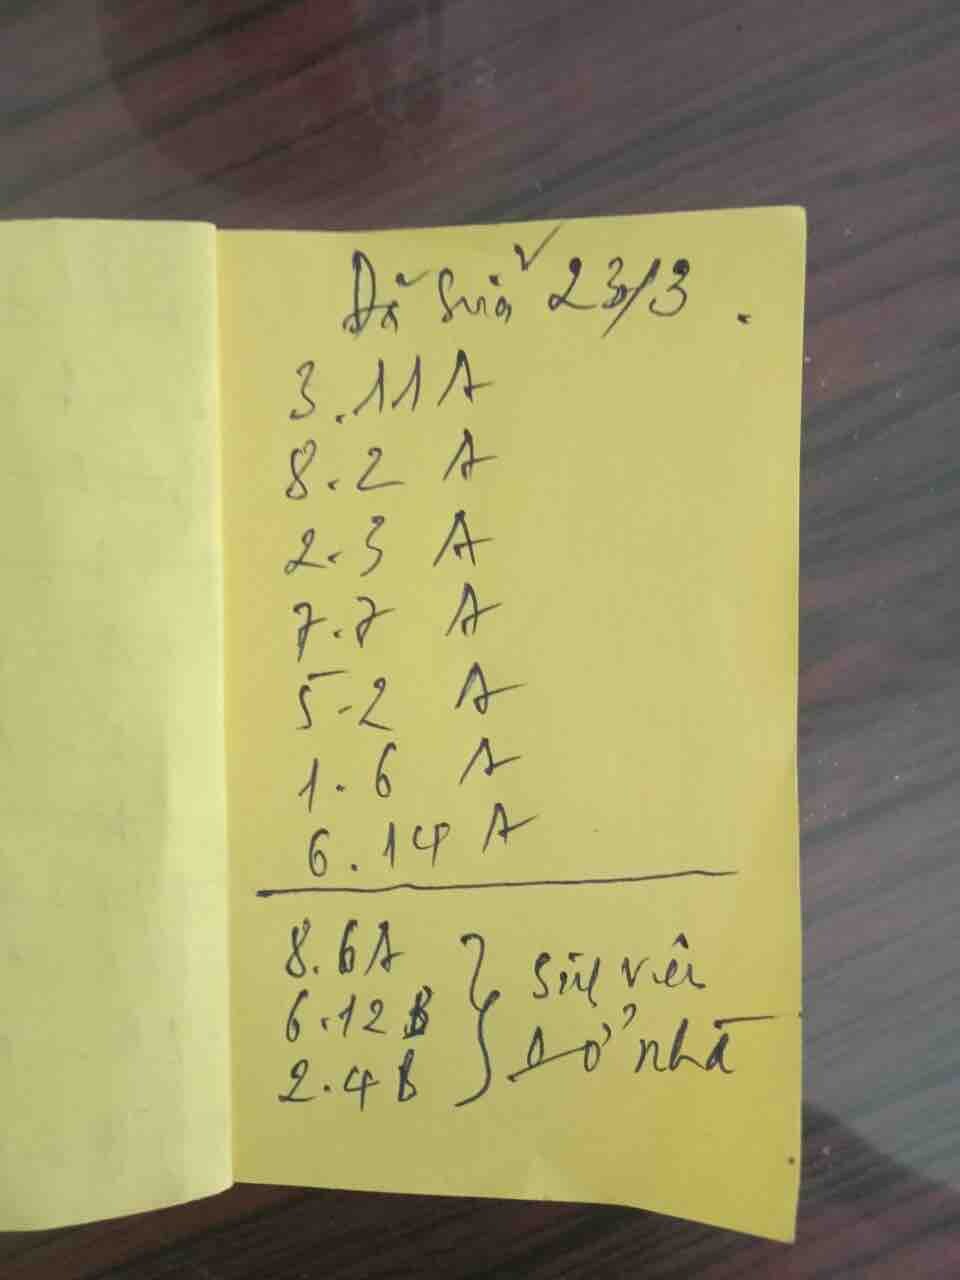 Đã Sửa 23/3.
3.11 A
8.2 A
2.3 A
7.7 A
5-2 A
1.6 A
6.14 A
8.6A
6.12 B
2.4 B
viên
ở nhà